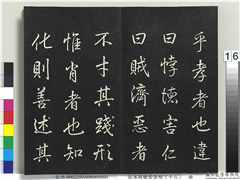 乎孝者也違
曰悖德害仁
曰賊濟惡者
不才其踐形
惟肖者也知
化則善述其
16